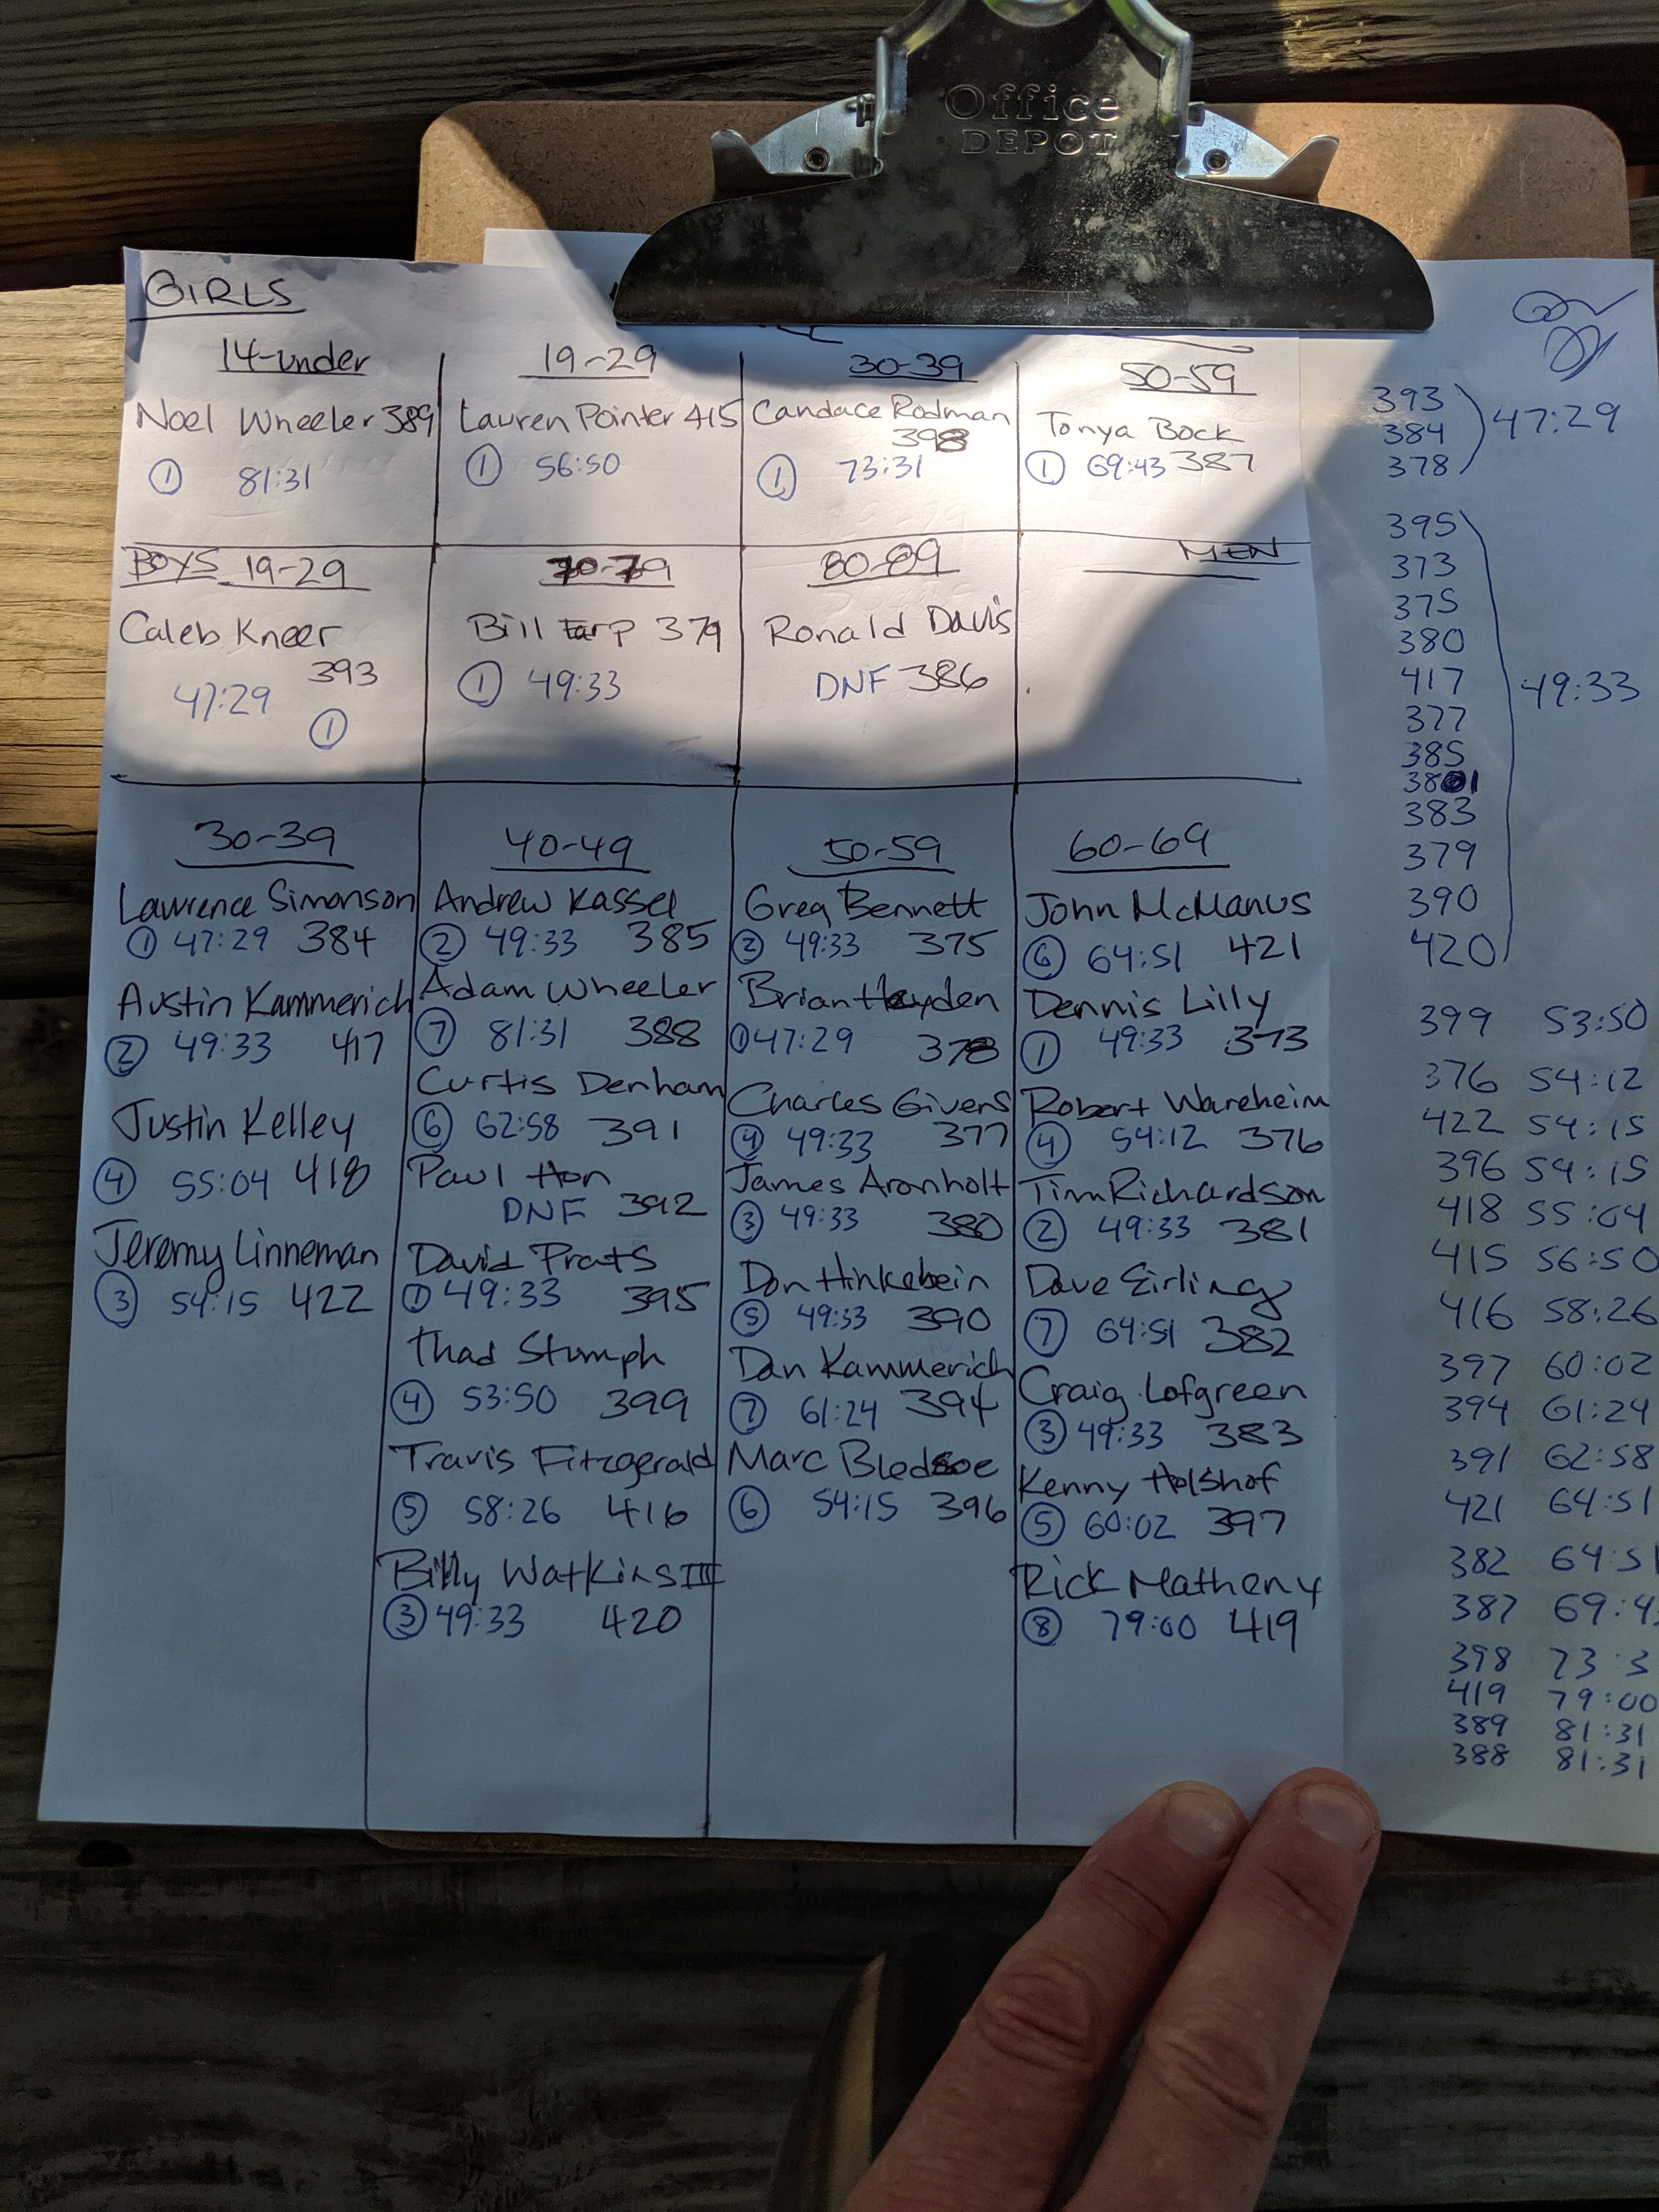 Office
DEPOT
GIRLS
14-under
Noel Wheeler 389
① 81:31
19-29
Lauren Pointer 415
① 56:50
30-39
Candace Rodman
398
① 73:31
50-59
Tonya Bock
① 69:43 387
BOYS 19-29
Caleb Kneer
393
47:29
①
70-79
Bill Earp 379
① 49:33
80-89
Ronald Davis
DNF 386
MEN
30-39
Lawrence Simonson
① 47:29 384
Austin Kammerich
② 49:33 417
Justin Kelley
④ 55:04 418
Jeremy Linneman
③ 54:15 422
40-49
Andrew Kassel
② 49:33 385
Adam Wheeler
⑦ 81:31 388
Curtis Denham
⑥ 62:58 391
Paul Hon
DNF 392
David Prats
① 49:33 395
Thad Stumph
④ 53:50 399
Travis Fitzgerald
⑤ 58:26 416
Billy Watkins III
③ 49:33 420
50-59
Greg Bennett
② 49:33 375
Brian Hayden
① 47:29 378
Charles Givens
④ 49:33 377
James Aronholt
③ 49:33 380
Don Hinkebein
⑤ 49:33 390
Dan Kammerich
⑦ 61:24 394
Marc Bledsoe
⑥ 54:15 396
60-69
John McManus
⑥ 64:51 421
Dennis Lilly
① 49:33 373
Robert Wareheim
④ 54:12 376
Tim Richardson
② 49:33 381
Dave Eirling
⑦ 64:51 382
Craig Lofgreen
③ 49:33 383
Kenny Holshof
⑤ 60:02 397
Rick Matheny
⑧ 79:00 419
393
384
378
47:29
395
373
375
380
417
377
385
381
383
379
390
420
49:33
399 53:50
376 54:12
422 54:15
396 54:15
418 55:04
415 56:50
416 58:26
397 60:02
394 61:24
391 62:58
421 64:51
382 64:51
387 69:4
398 73:3
419 79:00
389 81:31
388 81:31